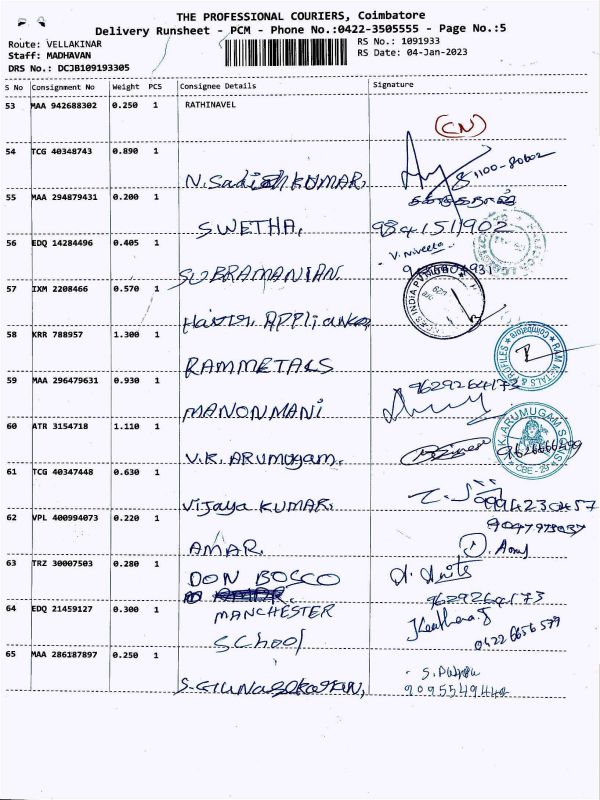 THE PROFESSIONAL COURIERS, Coimbatore
Delivery Runsheet - PCM - Phone No.:0422-3505555 - Page No.:5
Route: VELLAKINAR
RS No.: 1091933
Staff: MADHAVAN
RS Date: 04-Jan-2023
DRS No.: DCJB109193305
S No Consignment No Weight PCS Consignee Details Signature
53 MAA 942688302 0.250 1 RATHINAVEL
(CN)
54 TCG 40348743 0.890 1
N. Sadish KUMAR
55 MAA 294879431 0.200 1
SWETHA, 9841511902
56 EDQ 14284496 0.405 1
SUBRAMANIAN
57 IXM 2208466 0.570 1
58 KRR 788957 1.300 1
RAMMETALS
RAM METALS & PROFILES * Coimbatore
59 MAA 296479631 0.930 1 9629264173
MANONMANI
60 ATR 3154718 1.110 1
V.K. ARUMUGAM.
61 TCG 40347448 0.630 1
Vijaya KUMAR
62 VPL 400994073 0.220 1
AMAR
63 TRZ 30007503 0.280 1
DON BOSCO
9629264173
64 EDQ 21459127 0.300 1 MANCHESTER
SChool 0422 6656 579
65 MAA 286187897 0.250 1